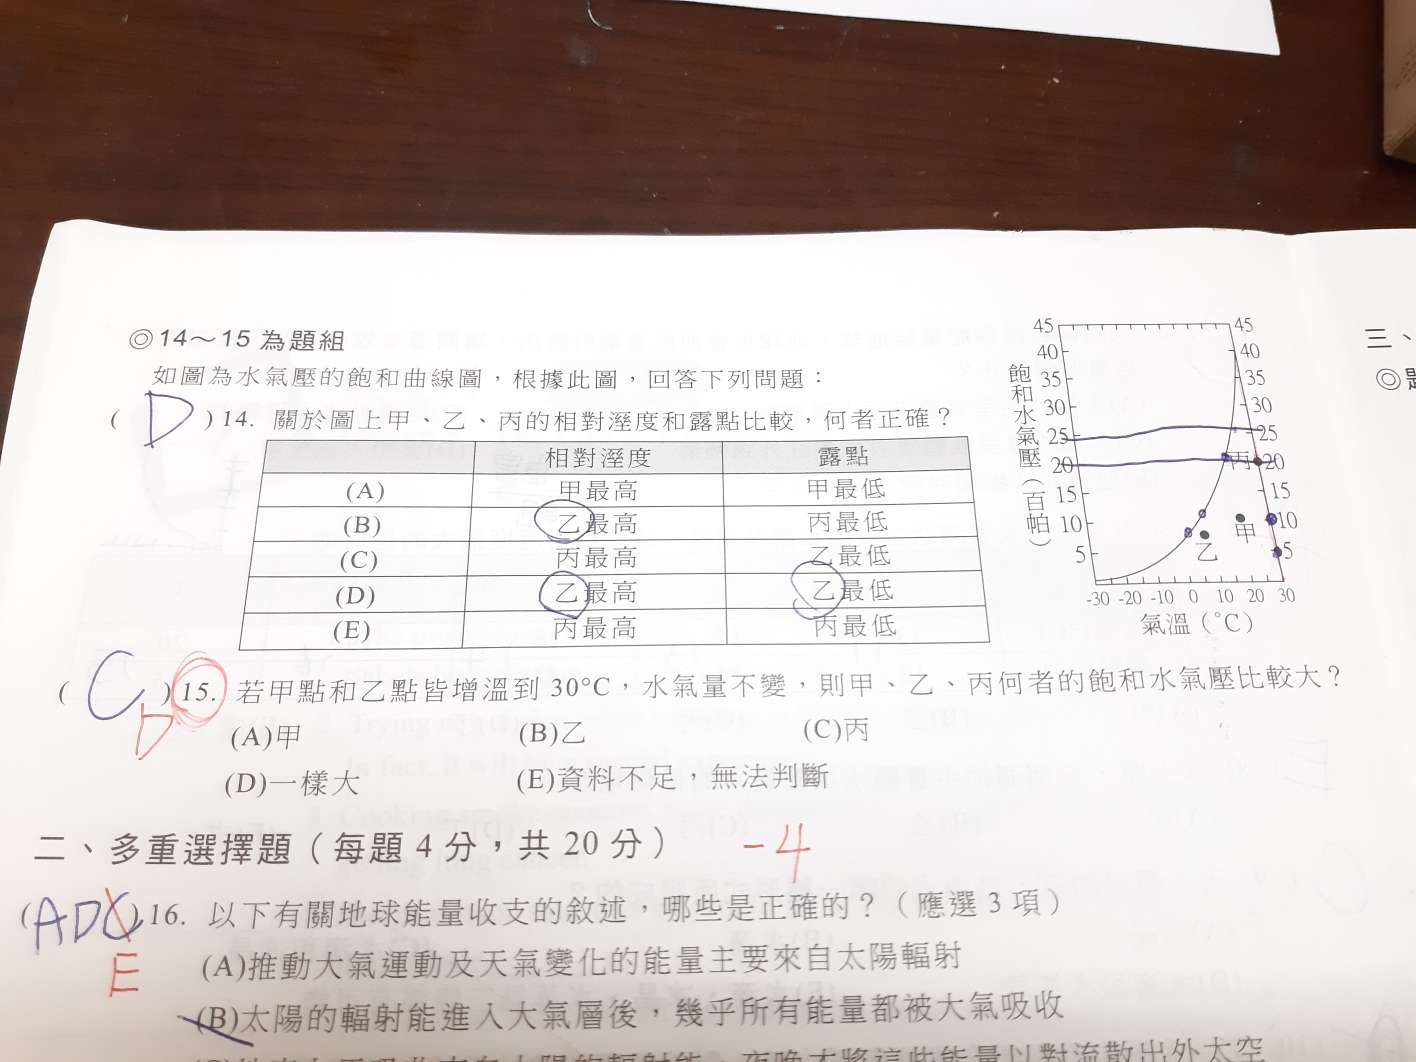 ◎14～15為題組
如圖為水氣壓的飽和曲線圖，根據此圖，回答下列問題：
( D )14. 關於圖上甲、乙、丙的相對溼度和露點比較，何者正確？
相對溼度 露點
(A) 甲最高 甲最低
(B) 乙最高 丙最低
(C) 丙最高 乙最低
(D) 乙最高 乙最低
(E) 丙最高 丙最低
飽和水氣壓(百帕)
45 45
40 40
35 35
30 30
25 25
20 丙 20
15 15
10 甲 10
5 乙 5
-30 -20 -10 0 10 20 30
氣溫(°C)
三、
◎題
( C )15. 若甲點和乙點皆增溫到 30°C，水氣量不變，則甲、乙、丙何者的飽和水氣壓比較大？
D
(A)甲 (B)乙 (C)丙
(D)一樣大 (E)資料不足，無法判斷
二、多重選擇題（每題 4 分，共 20 分） -4
( ADC )16. 以下有關地球能量收支的敘述，哪些是正確的？（應選 3 項）
E
(A)推動大氣運動及天氣變化的能量主要來自太陽輻射
(B)太陽的輻射能進入大氣層後，幾乎所有能量都被大氣吸收